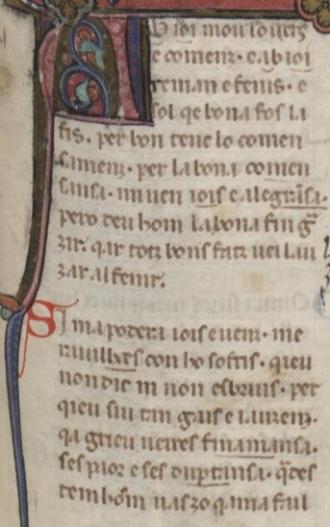 Ab ioi mou lo uerz
e comenz. e ab ioi
reman e fenis. e
sol qe bona fos la
fis. per bon tenc lo comen
samenz. per la bona comen
sansa. mi uen iois e alegrasa.
pero deu hom la bona fin gra
zir. qar totz bons fatz uei lau
zar al fenir.
Si m apodera iois e uenz. me
rauilhes con ho sofris. qieu
non dic ni non esbruis. per
qieu sui tan gais e iauzenz.
qa greu ueires finamansa.
ses paor e ses duptansa. qades
tem hom uas zo qama fail